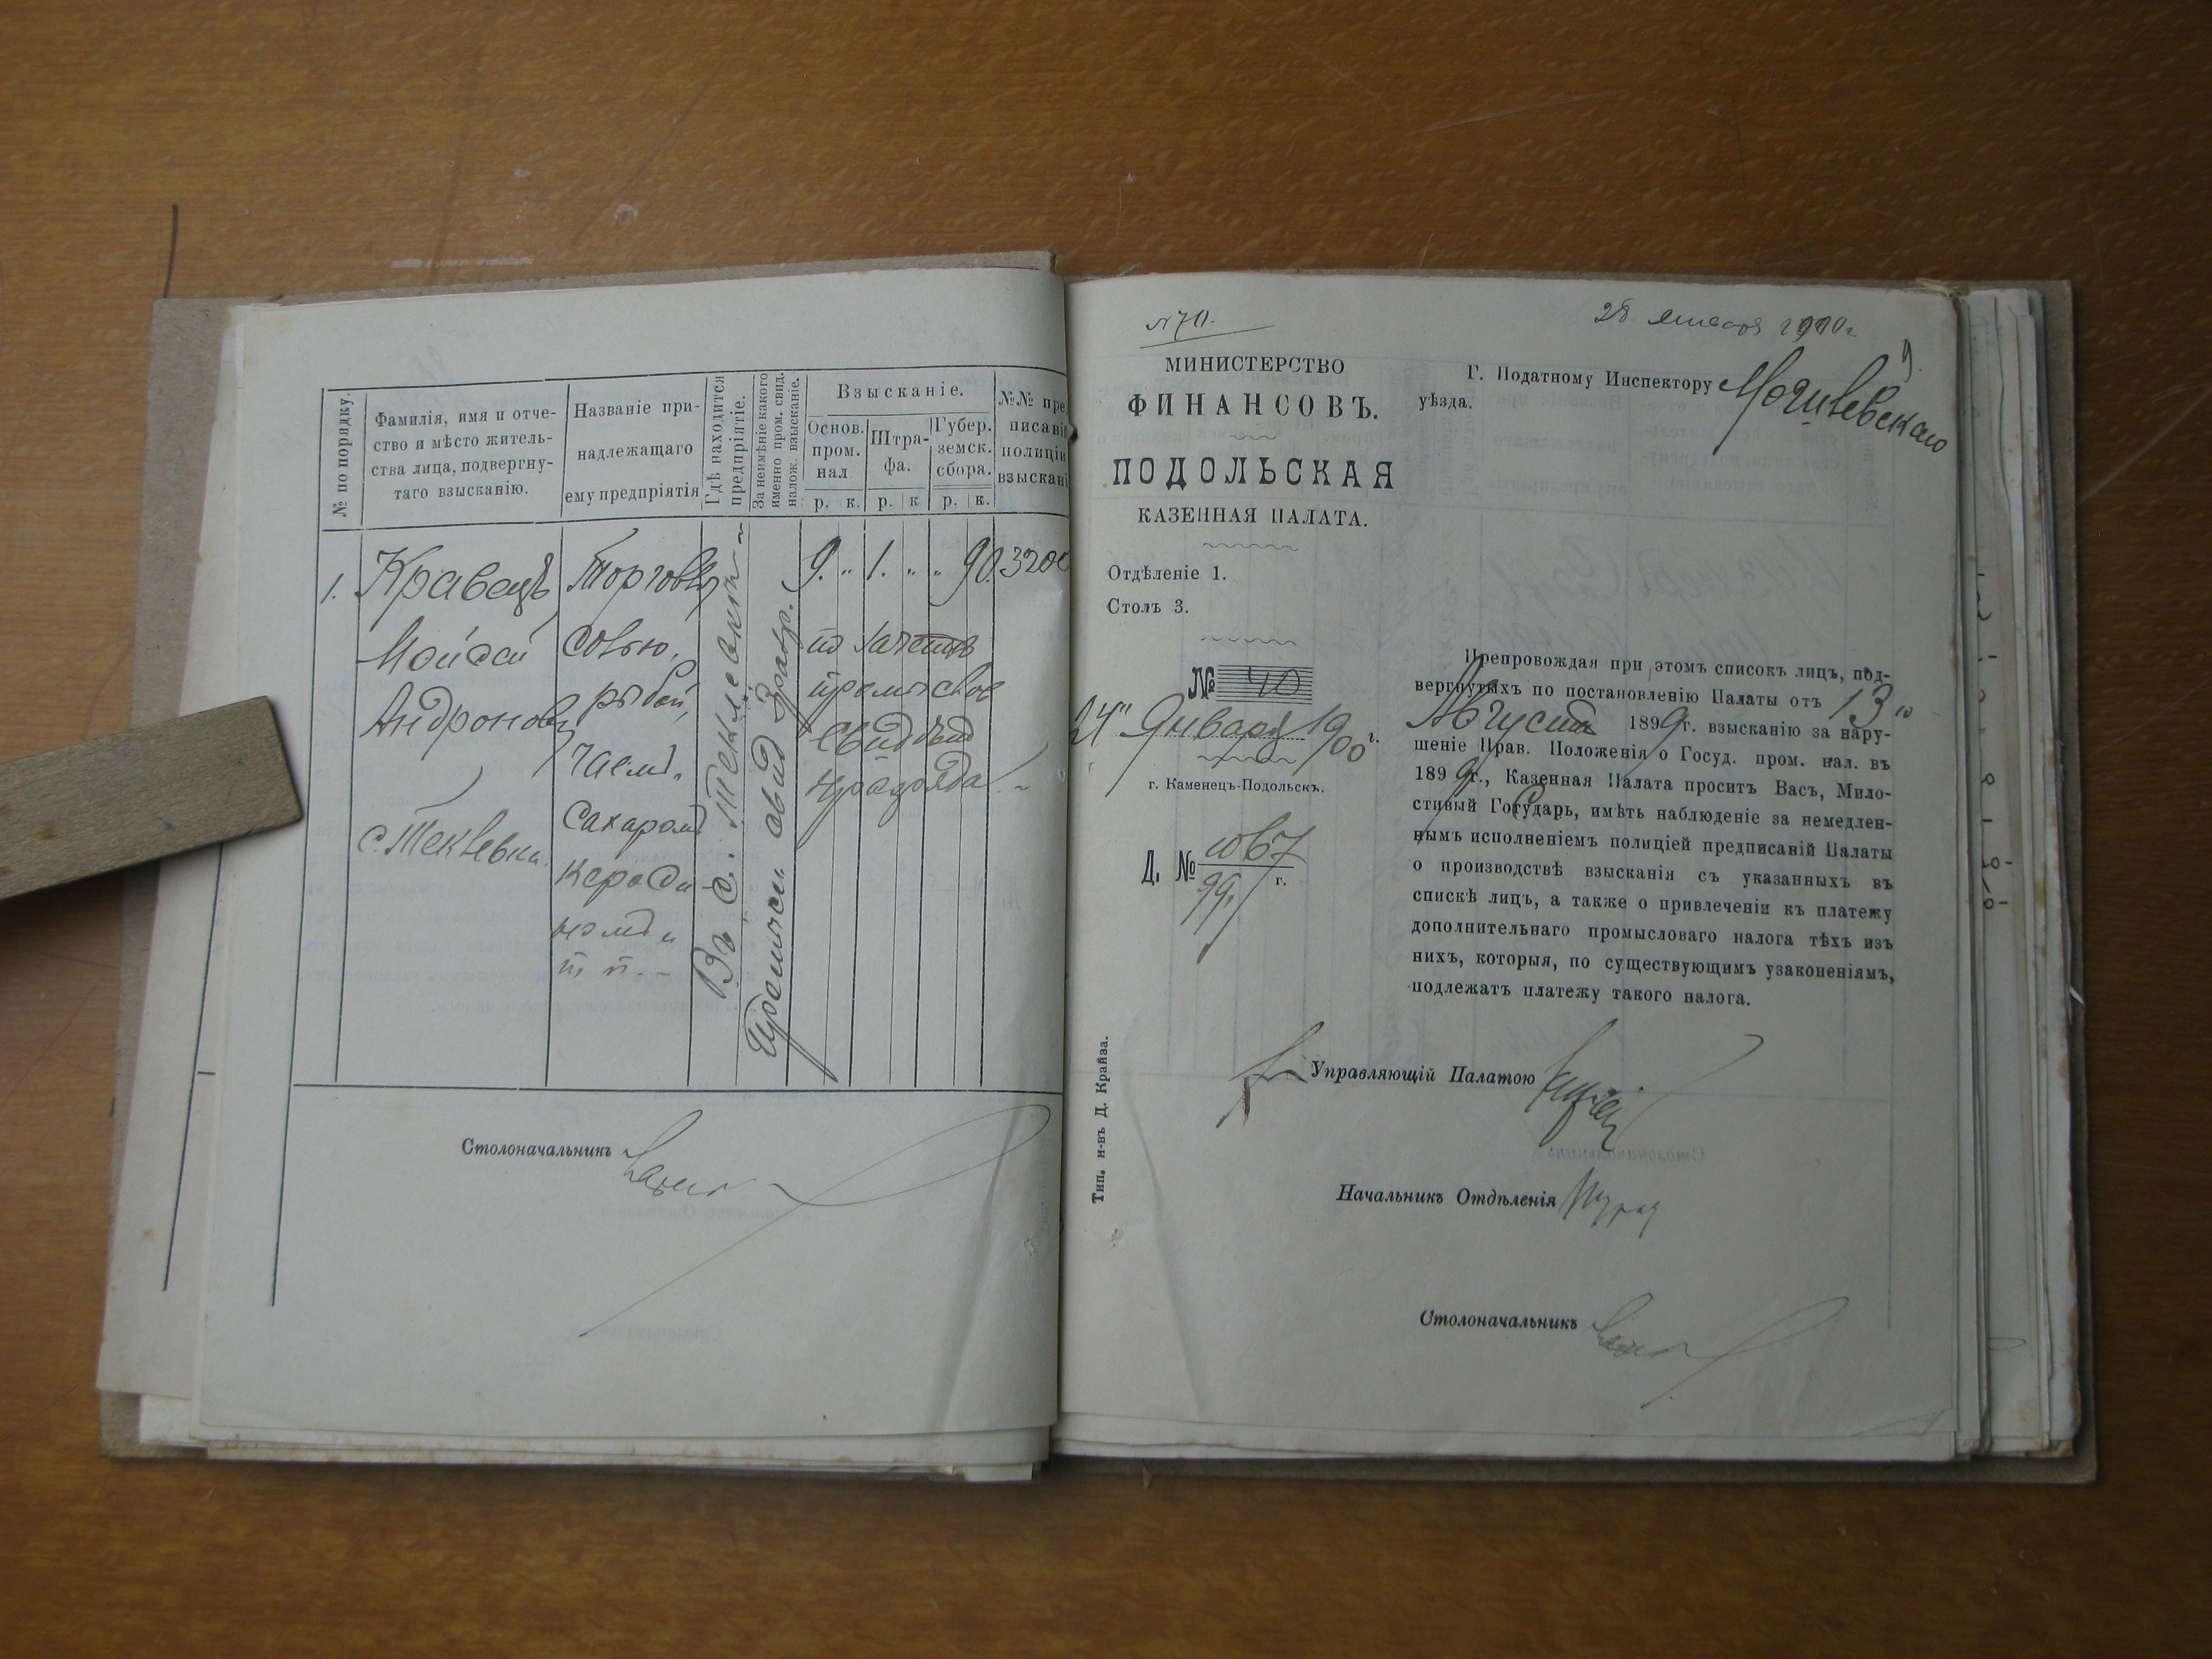 № по порядку.
Фамилія, имя и отче-
ство и мѣсто житель-
ства лица, подвергну-
таго взысканію.
Названіе при-
надлежащаго
ему предпріятія
Гдѣ находится
предпріятіе.
За неимѣніе какого
именно пром. свид.
налож. взысканіе.
Взысканіе.
Основ.
пром.
нал
Штра-
фа.
Губер.
земск.
сбора.
р. к. р. к р. к.
№№ пред
писані
полиціи
взыскані
1. Кравецъ
Мойсей
Андроновъ
с. Теклевки.
Торговля
солью,
рыбой,
чаемъ,
сахаромъ
кероси
номъ и
т. п. -
Въ с. Теклевки
9. " 1. " " 90. 3200
промысловое
Столоначальникъ
№ 70.
28 января 1900 г.
МИНИСТЕРСТВО
ФИНАНСОВЪ.
ПОДОЛЬСКАЯ
КАЗЕННАЯ ПАЛАТА.
Отдѣленіе 1.
Столъ 3.
№ 40
24" Января 1900 г.
г. Каменецъ-Подольскъ.
Д. № 1067
99 г.
Тип. н-въ Д. Крайза.
Г. Податному Инспектору Могилевскаго
уѣзда.
Препровождая при этомъ списокъ лицъ, под-
вергнутыхъ по постановленію Палаты отъ 13го
Августа 1899 г. взысканію за нару-
шеніе Прав. Положенія о Госуд. пром. нал. въ
1899 г., Казенная Палата проситъ Васъ, Мило-
стивый Государь, имѣть наблюденіе за немедлен-
нымъ исполненіемъ полиціей предписаній Палаты
о производствѣ взысканія съ указанныхъ въ
спискѣ лицъ, а также о привлеченіи къ платежу
дополнительнаго промысловаго налога тѣхъ изъ
нихъ, которыя, по существующимъ узаконеніямъ,
подлежатъ платежу такого налога.
Управляющій Палатою
Начальникъ Отдѣленія
Столоначальникъ